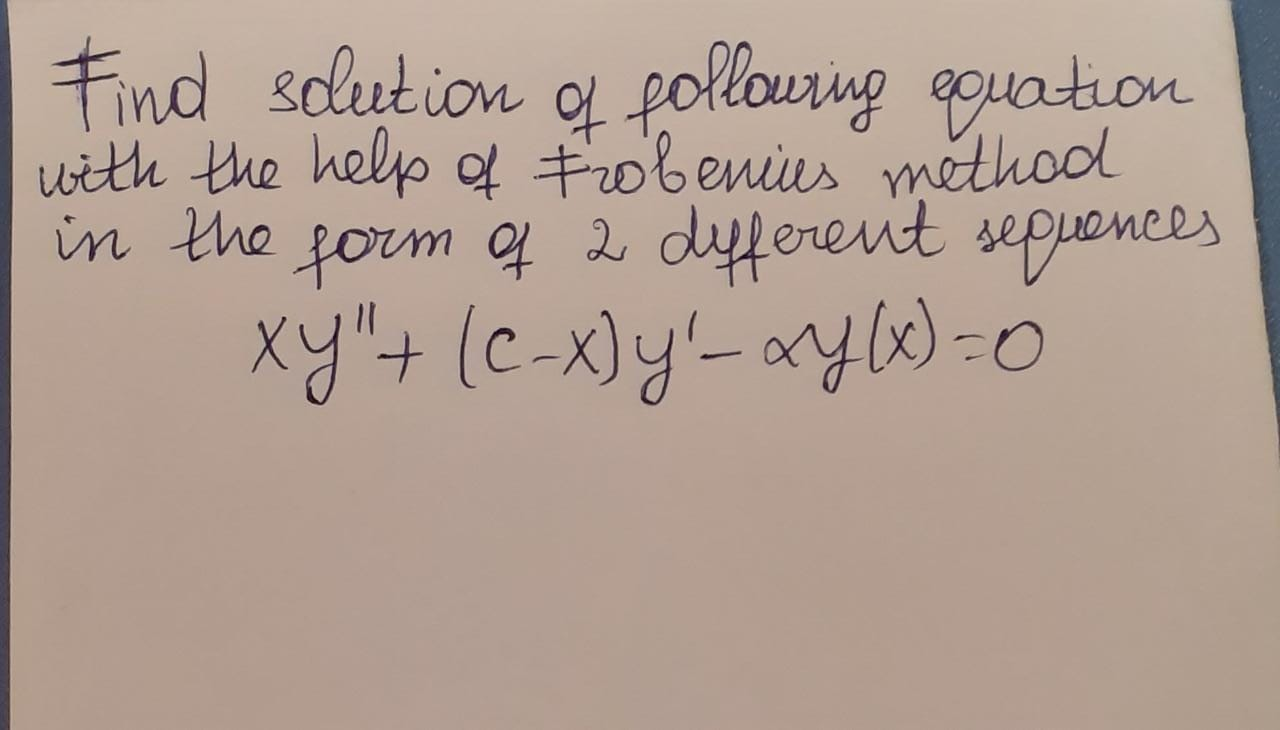 Find solution of following equation
with the help of Frobenius method
in the form of 2 different sequences
xy'' + (c-x)y' - αy(x) = 0